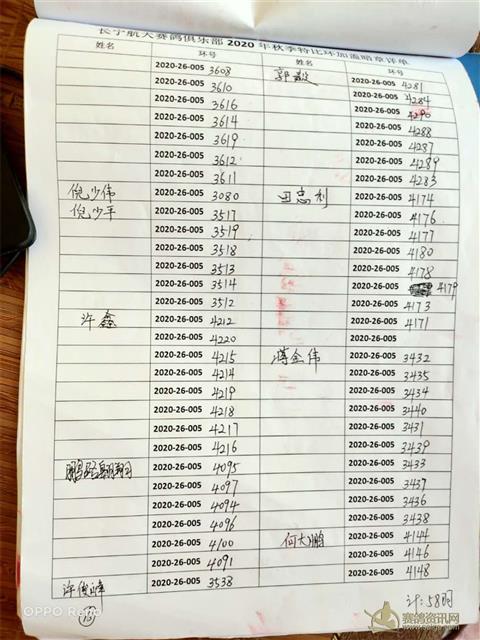 长宁航天赛鸽俱乐部 2020 年秋季特比环加盖暗章详单
姓名 环号 姓名 环号
2020-26-005 3608 郭 2020-26-005 4281
2020-26-005 3610 2020-26-005 4284
2020-26-005 3616 2020-26-005 4290
2020-26-005 3614 2020-26-005 4288
2020-26-005 3619 2020-26-005 4287
2020-26-005 3612 2020-26-005 4289
2020-26-005 3611 2020-26-005 4283
倪少伟 2020-26-005 3080 田忠利 2020-26-005 4174
倪少平 2020-26-005 3517 2020-26-005 4176
2020-26-005 3519 2020-26-005 4177
2020-26-005 3518 2020-26-005 4180
2020-26-005 3513 2020-26-005 4178
2020-26-005 3514 2020-26-005 4179
2020-26-005 3512 2020-26-005 4173
许鑫 2020-26-005 4212 2020-26-005 4171
2020-26-005 4220 2020-26-005
2020-26-005 4215 蒋金伟 2020-26-005 3432
2020-26-005 4214 2020-26-005 3435
2020-26-005 4219 2020-26-005 3434
2020-26-005 4218 2020-26-005 3440
2020-26-005 4217 2020-26-005 3431
2020-26-005 4216 2020-26-005 3439
2020-26-005 4095 2020-26-005 3433
2020-26-005 4097 2020-26-005 3437
2020-26-005 4094 2020-26-005 3436
2020-26-005 4096 2020-26-005 3438
2020-26-005 4100 何大鹏 2020-26-005 4144
2020-26-005 4091 2020-26-005 4146
许俊峰 2020-26-005 3538 2020-26-005 4148
计:58羽
OPPO Reno
赛鸽资讯网